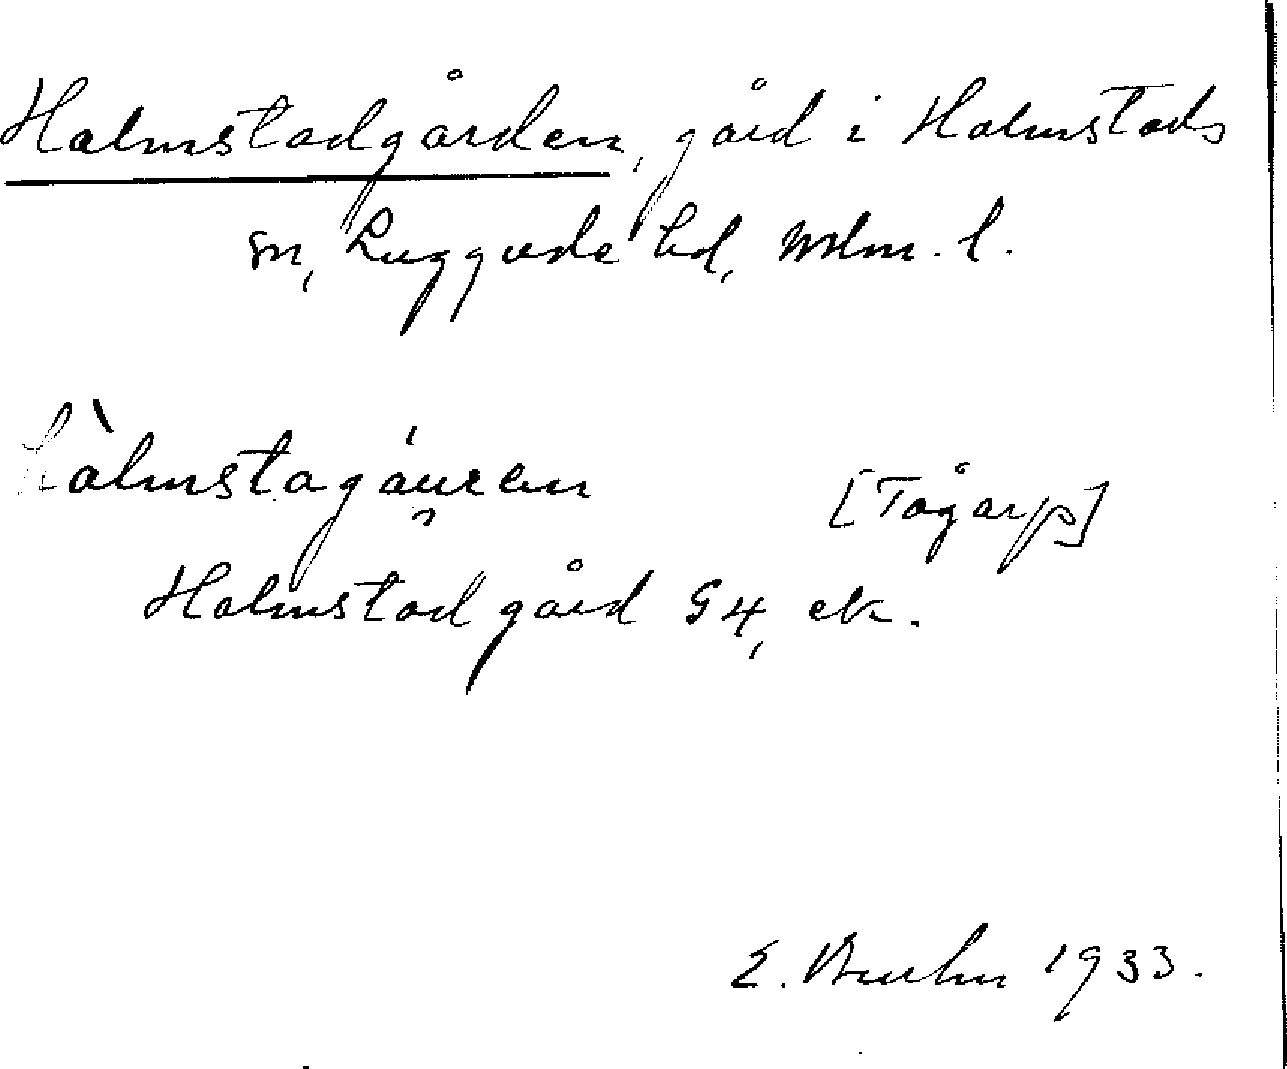 Holmstadgården, gård i Halmstads
sn, Luggude hd, Mlm. l.
hàlmstagáu̯ren
[Tågarp]
Halmstad gård G4, ek.
E. Bruhn 1933.